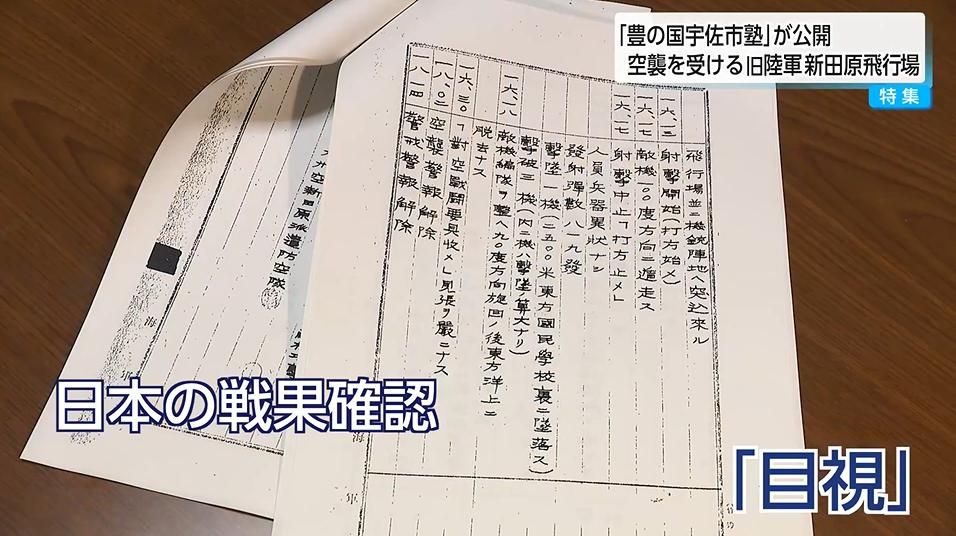 「豊の国宇佐市塾」が公開
空襲を受ける旧陸軍 新田原飛行場
特集
飛行場並ニ機銃陣地ヘ突込来ル
一六.一三 射撃開始(打方始メ)
一六.一七 敵機一〇〇度方向ニ遁走ス
一六.一七 射撃中止「打方止メ」
人員兵器異状ナシ
発射弾数八一九發
撃墜一機(二五〇〇米東方國民學校裏ニ墜落ス)
撃破三機(内二機ハ撃墜ノ算大ナリ)
一六.一八 敵機編隊ヲ整ヘ九〇度方向旋回ノ後東方洋上ニ
脱去ナス
一六.三〇 「對空戰闘要具收メ」見張ヲ嚴ニナス
一八.〇二 空襲警報解除
一八.一四 警戒警報解除
海
軍
新田原派遣防空隊
海
日本の戦果確認
「目視」